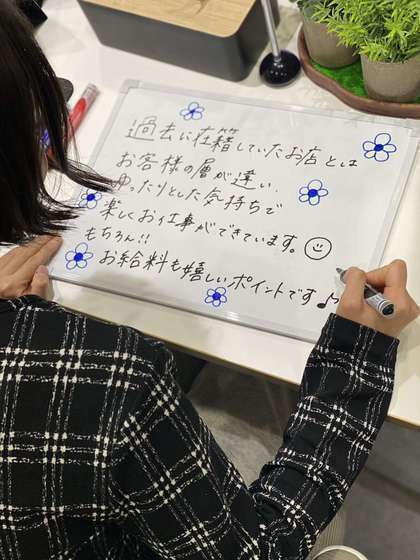 過去に在籍していたお店とは
お客様の層が違い、
ゆったりとした気持ちで
楽しくお仕事ができています。
もちろん!!
お給料も嬉しいポイントです♪